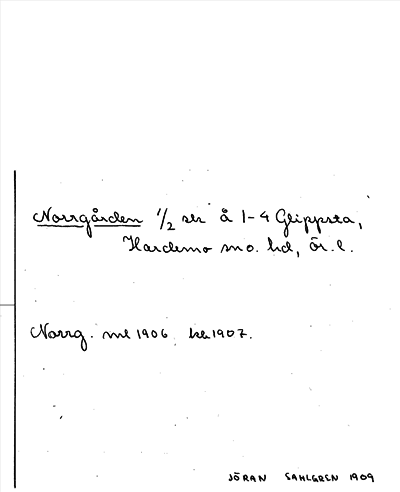 Norrgården 1/2 sk å 1-4 Glippsta,
Hardemo sn o. hd, ör. l.
Norrg. ml 1906 kk 1907.
JÖRAN SAHLGREN 1909